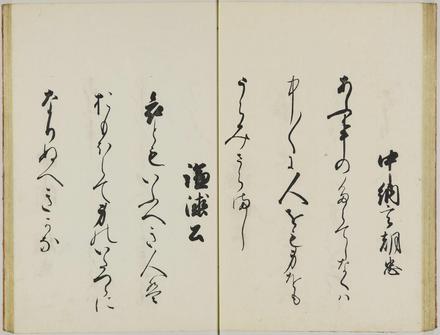 中納言朝忠
あふ事のたえてしなくハ
中〱に人をも身をも
うらみさらまし
謙徳公
哀ともいふへき人は
おもほえて身のいたつらに
なりぬへきかな